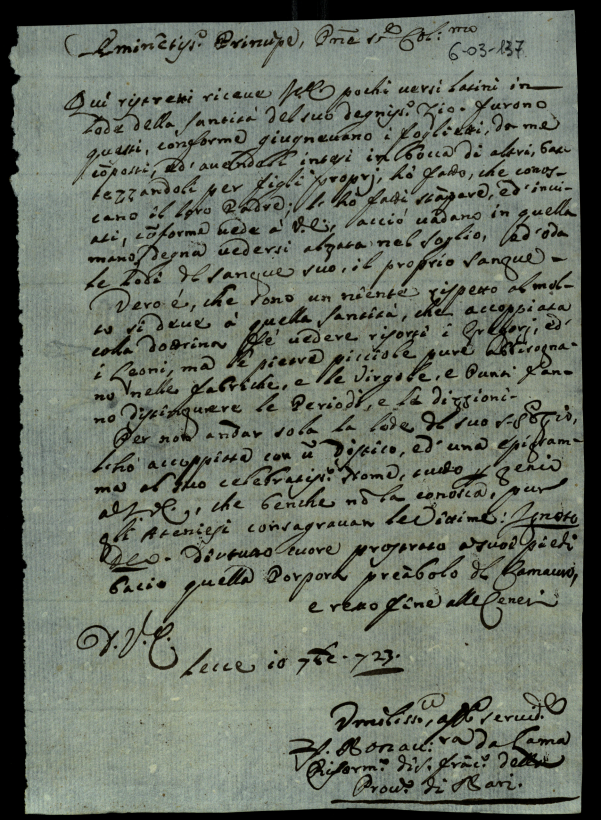 Eminẽtiss.º Principe, Prñe ss.º Col:mo
6-03-137
Qui ristretti riceve V.E. pochi versi latini in
lode della Santità del suo degniss.º Zio. Furono
questi, conforme giugnevano i foglietti, da me
cõposti, ed' avendoli intesi in bocca di altri, bat-
tezzandoli per figli proprj, hò fatto, che conos-
cano il loro Padre; li hò fatti stãpare, ed' invi-
ati, cõforme vede à V.E., acciò vadano in quella
mano, degna vedersi alzata nel soglio, ed' oda
le lodi del sangue suo, il proprio sangue.
Vero é, che sono un niente rispetto al mol-
to si deve à quella santità, che accoppiata
colla dottrina fé vedere risorti i Gregorj, ed'
i Leoni, ma le pietre picciole pure abbisogna-
no nelle fabriche, e le Virgole, e Punti fan-
no distinguere le Periodi, e le dizzioni.
Per non andar sola la lode del suo S. Zio,
l'hò accoppiata con ũ Distico, ed' una epigram-
ma al suo celebratiss.º Nome, tutto genio
à V.E., che benche nõ la conosca, pur
gli Ateniesi consagravan le vittime: Ignoto
Deo. Di tutto cuore prostrato a suoi piedi
bacio quella Porpora preãbolo del Camauro,
e resto fine alle Ceneri
D. V. E.
Lecce 10 7bre. 723.
Umiliss.º, aff.º servid.e
F. Bonav.ra da Lama
Riform.º di S. Frãc.º della
Prov.ª di Bari.